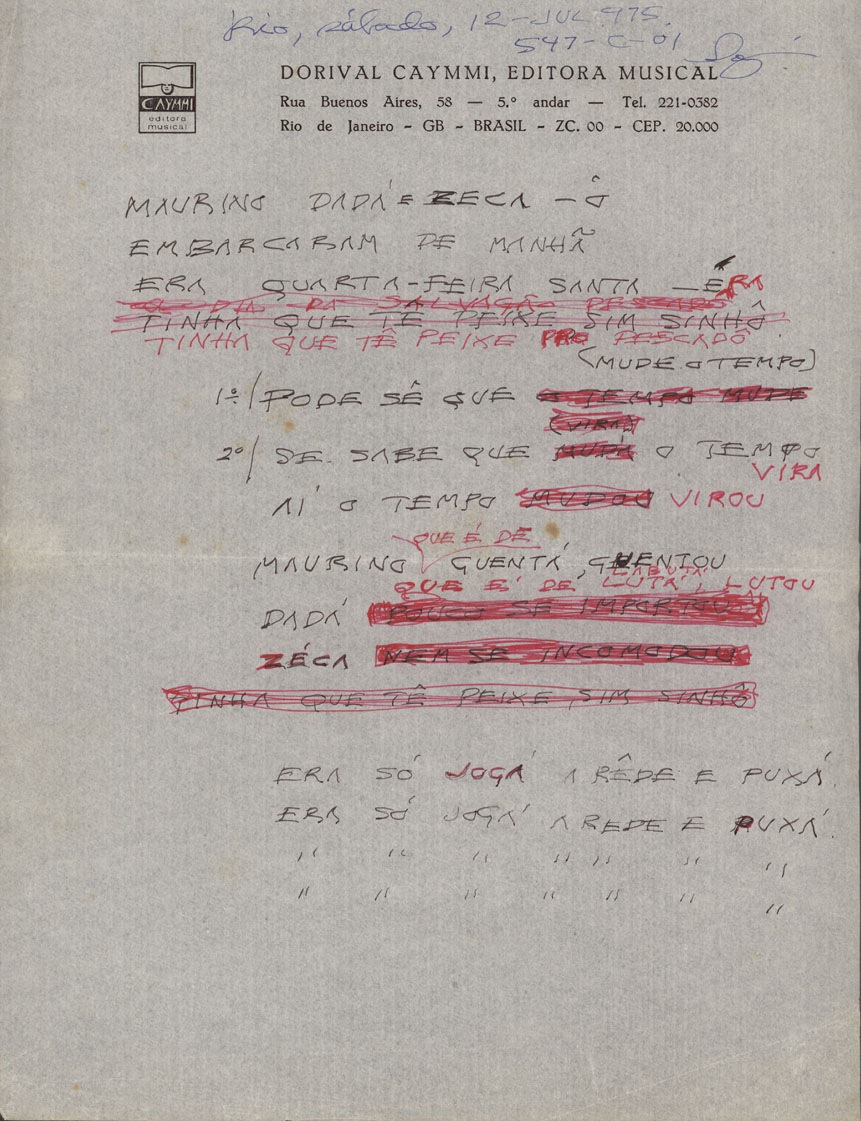 Rio, sábado, 12-JUL 975.
547-C-01
CAYMMI
editora
musical
DORIVAL CAYMMI, EDITORA MUSICAL
Rua Buenos Aires, 58 — 5.º andar — Tel. 221-0382
Rio de Janeiro - GB - BRASIL - ZC. 00 - CEP. 20.000
MAURINO DADÁ E ZECA -Ô
EMBARCARAM DE MANHÃ
ERA QUARTA-FEIRA SANTA -ERA
O DIA DA SALVAÇÃO PESCADÔ
TINHA QUE TÊ PEIXE SIM SINHÔ
TINHA QUE TÊ PEIXE PRO PESCADÔ
(MUDE O TEMPO)
1º/ PODE SÊ QUE O TEMPO MUDE
(VIRA)
2º/ SE SABE QUE MUDA O TEMPO
VIRA
AÍ O TEMPO MUDOU VIROU
QUE É DE
MAURINO GUENTÁ, GUENTOU
LABUTÁ
QUE É DE LUTÁ, LUTOU
DADÁ POUCO SE IMPORTOU
ZÉCA NEM SE INCOMODOU
TINHA QUE TÊ PEIXE SIM SINHÔ
ERA SÓ JOGÁ A RÊDE E PUXÁ
ERA SÓ JOGÁ A REDE E PUXÁ.
" " " " " " "
" " " " " " "